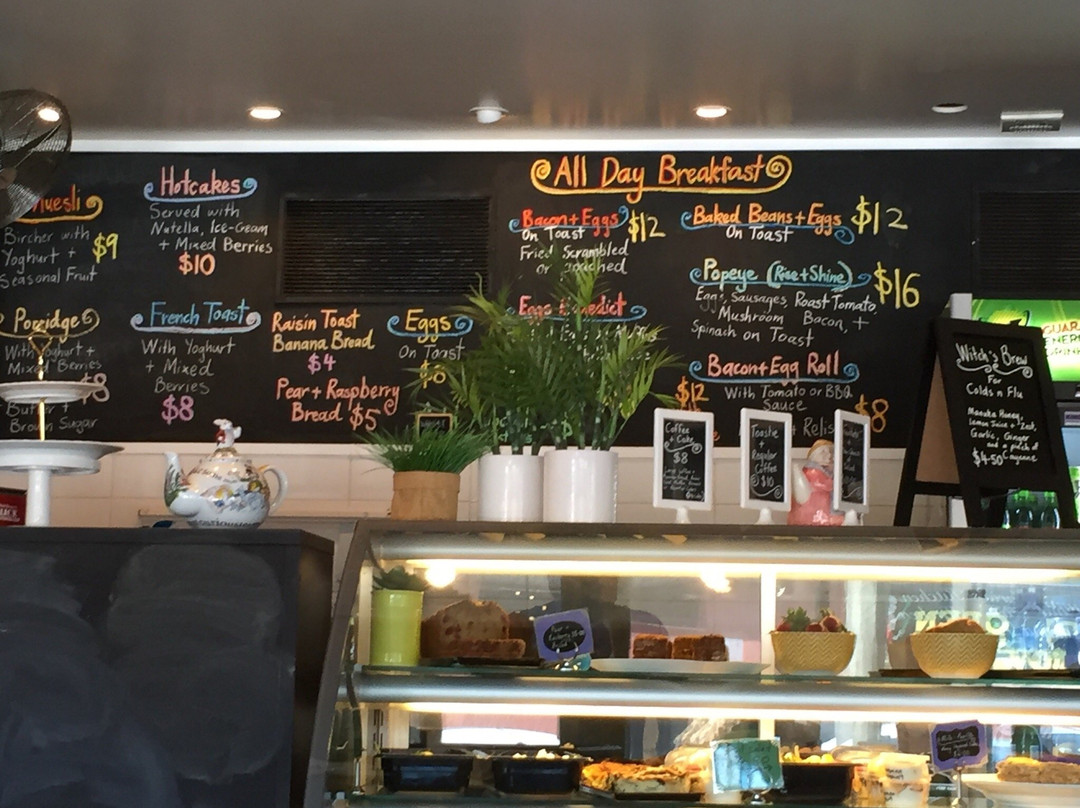 Muesli
Bircher with
Yoghurt +
Seasonal Fruit
$9
Porridge
With Yoghurt +
Mixed Berries
$8
Butter +
Brown Sugar
Hotcakes
Served with
Nutella, Ice-Cream
+ Mixed Berries
$10
French Toast
With Yoghurt
+ Mixed
Berries
$8
Raisin Toast
Banana Bread
$4
Pear + Raspberry
Bread $5
Eggs
On Toast
All Day Breakfast
Bacon + Eggs
On Toast
Fried Scrambled
or Poached
$12
Eggs Benedict
$12
Baked Beans + Eggs
On Toast
$12
Popeye (Rise + Shine)
Eggs, Sausages Roast Tomato,
Mushroom Bacon, +
Spinach on Toast
$16
Bacon + Egg Roll
With Tomato or BBQ
Sauce
$8
Witch's Brew
For
Colds n Flu
Manuka Honey,
Lemon Juice + Zest,
Garlic, Ginger
and a pinch of
Cayenne
$4.50
Coffee
+ Cake
$8
Toastie
+
Regular
Coffee
$10